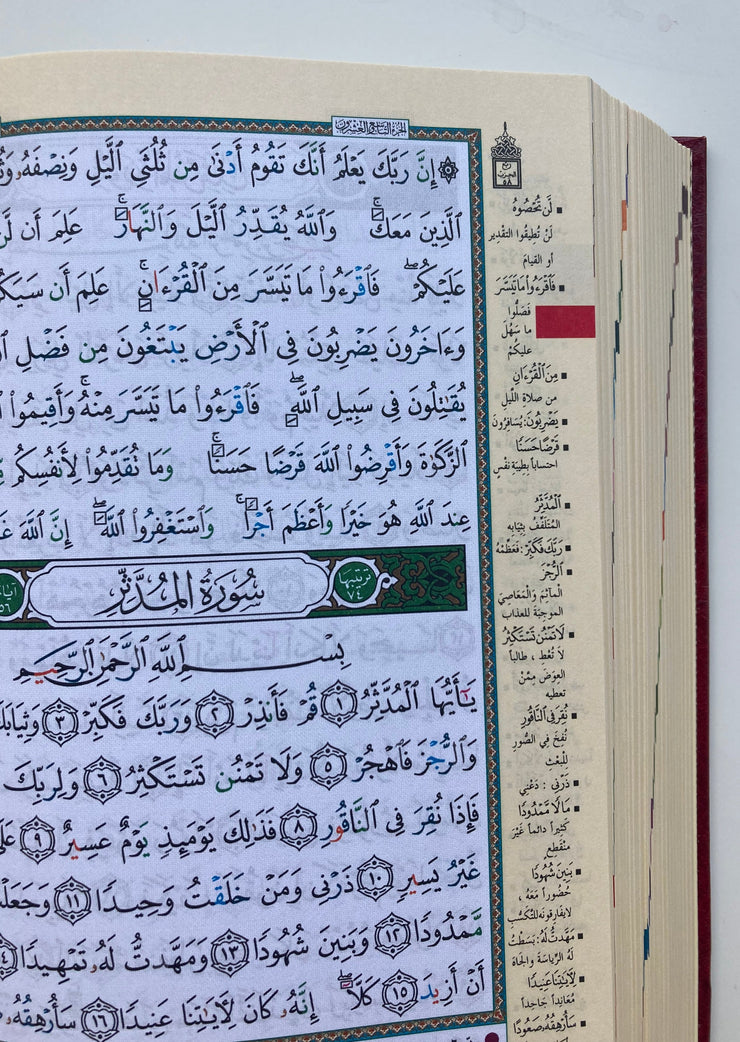 الجزء التاسع والعشرون
۞ إِنَّ رَبَّكَ يَعْلَمُ أَنَّكَ تَقُومُ أَدْنَىٰ مِن ثُلُثَيِ ٱلَّيْلِ وَنِصْفَهُۥ
ٱلَّذِينَ مَعَكَ ۚ وَٱللَّهُ يُقَدِّرُ ٱلَّيْلَ وَٱلنَّهَارَ ۚ عَلِمَ أَن
عَلَيْكُمْ ۖ فَٱقْرَءُوا۟ مَا تَيَسَّرَ مِنَ ٱلْقُرْءَانِ ۚ عَلِمَ أَن
وَءَاخَرُونَ يَضْرِبُونَ فِى ٱلْأَرْضِ يَبْتَغُونَ مِن فَضْلِ
يُقَـٰتِلُونَ فِى سَبِيلِ ٱللَّهِ ۖ فَٱقْرَءُوا۟ مَا تَيَسَّرَ مِنْهُ ۚ وَأَقِيمُوا۟
ٱلزَّكَوٰةَ وَأَقْرِضُوا۟ ٱللَّهَ قَرْضًا حَسَنًا ۚ وَمَا تُقَدِّمُوا۟ لِأَنفُسِكُم
عِندَ ٱللَّهِ هُوَ خَيْرًا وَأَعْظَمَ أَجْرًا ۚ وَٱسْتَغْفِرُوا۟ ٱللَّهَ ۖ إِنَّ ٱللَّهَ
ترتيبها ٧٤
سُورَةُ المُدَّثِّرِ
بِسْمِ ٱللَّهِ ٱلرَّحْمَـٰنِ ٱلرَّحِيمِ
يَـٰٓأَيُّهَا ٱلْمُدَّثِّرُ ١ قُمْ فَأَنذِرْ ٢ وَرَبَّكَ فَكَبِّرْ ٣
وَٱلرُّجْزَ فَٱهْجُرْ ٥ وَلَا تَمْنُن تَسْتَكْثِرُ ٦ وَلِرَبِّكَ
فَإِذَا نُقِرَ فِى ٱلنَّاقُورِ ٨ فَذَٰلِكَ يَوْمَئِذٍ يَوْمٌ عَسِيرٌ ٩
غَيْرُ يَسِيرٍ ١٠ ذَرْنِى وَمَنْ خَلَقْتُ وَحِيدًا ١١
مَّمْدُودًا ١٢ وَبَنِينَ شُهُودًا ١٣ وَمَهَّدتُّ لَهُۥ تَمْهِيدًا
أَنْ أَزِيدَ ١٥ كَلَّآ ۖ إِنَّهُۥ كَانَ لِـَٔايَـٰتِنَا عَنِيدًا ١٦ سَأُرْهِقُهُۥ
ربع الحزب ٥٨
■ لَن تُحْصُوهُ
لَنْ تُطيقُوا التقدير
أو القيامَ
■ فَاقْرَءُوا مَا تَيَسَّرَ
فَصَلُّوا
ما سَهُلَ
عليكُمْ
■ مِنَ الْقُرْءَانِ
من صلاة اللّيل
■ يَضْرِبُونَ: يُسَافِرُونَ
■ قَرْضًا حَسَنًا
احتساباً بطيبَة نفْسٍ
■ الْمُدَّثِّرُ
المُتَلَفِّفُ بِثِيَابه
■ رَبَّكَ فَكَبِّرْ: فَعَظِّمْهُ
■ الرُّجْزَ
المآثِمَ وَالْمَعَاصِيَ
الموجِبَةَ للعذاب
■ لَا تَمْنُن تَسْتَكْثِرُ
لَا تُعْطِ ، طالباً
العِوَضَ مِمَّنْ
تعطيه
■ نُقِرَ فِي النَّاقُورِ
نُفِخَ فِي الصُّورِ
لِلْبَعْثِ
■ ذَرْنِي : دَعْنِي
■ مَالًا مَّمْدُودًا
كَثِيراً دائماً غَيْرَ
مُنْقَطِعٍ
■ بَنِينَ شُهُودًا
حُضُوراً مَعَهُ ،
لا يفارقونَه للتكَسُّبِ
■ مَهَّدتُّ لَهُ: بَسَطْتُ
لَهُ الرِّيَاسَةَ والجَاهَ
■ لِآيَاتِنَا عَنِيدًا
مُعَانِداً جَاحِداً
■ سَأُرْهِقُهُ صَعُودًا